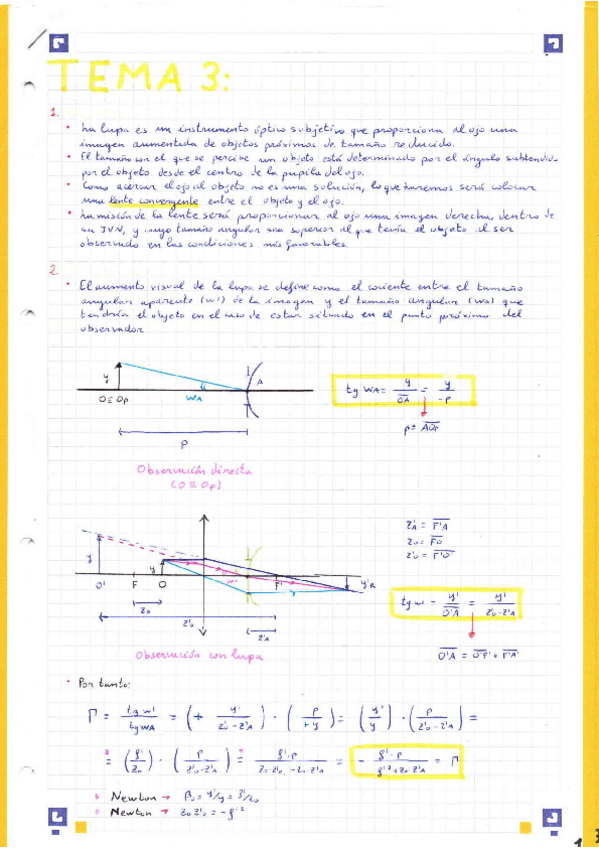 TEMA 3:
1.
• La lupa es un instrumento óptico subjetivo que proporciona al ojo una
imagen aumentada de objetos próximos de tamaño reducido.
• El tamaño con el que se percibe un objeto está determinado por el ángulo subtendido
por el objeto desde el centro de la pupila del ojo.
• Como acercar el ojo al objeto no es una solución, lo que haremos será colocar
una lente convergente entre el objeto y el ojo.
• La misión de la lente será proporcionar al ojo una imagen derecha, dentro de
su IVN, y cuyo tamaño angular sea superior al que tenía el objeto al ser
observado en las condiciones más favorables.
2.
• El aumento visual de la lupa se define como el cociente entre el tamaño
angular aparente (w') de la imagen y el tamaño angular (wA) que
tendría el objeto en el caso de estar situado en el punto próximo del
observador
y
O≡Op
WA
A
tg WA = y/OA = y/-p
p = AOp
p
Observación directa
(O≡Op)
z'A = F'A
zo = FO
z'o = F'O'
y'
y
w'
y'R
O' F O F'
zo
z'o
z'A
tg w' = y'/O'A = y'/z'o-z'A
Observación con lupa
O'A = O'F' + F'A
• Por tanto:
Γ = tg w'/tg WA = (+ y'/z'o-z'A) · (p/+y) = (y'/y) · (p/z'o-z'A) =
= (f'/zo) · (p/z'o-z'A) = f'·p/zo·z'o-zo·z'A = - f'·p/f'²+zo·z'A = Γ
* Newton → βo = y'/y = f'/zo
* Newton → zo z'o = -f'²
1